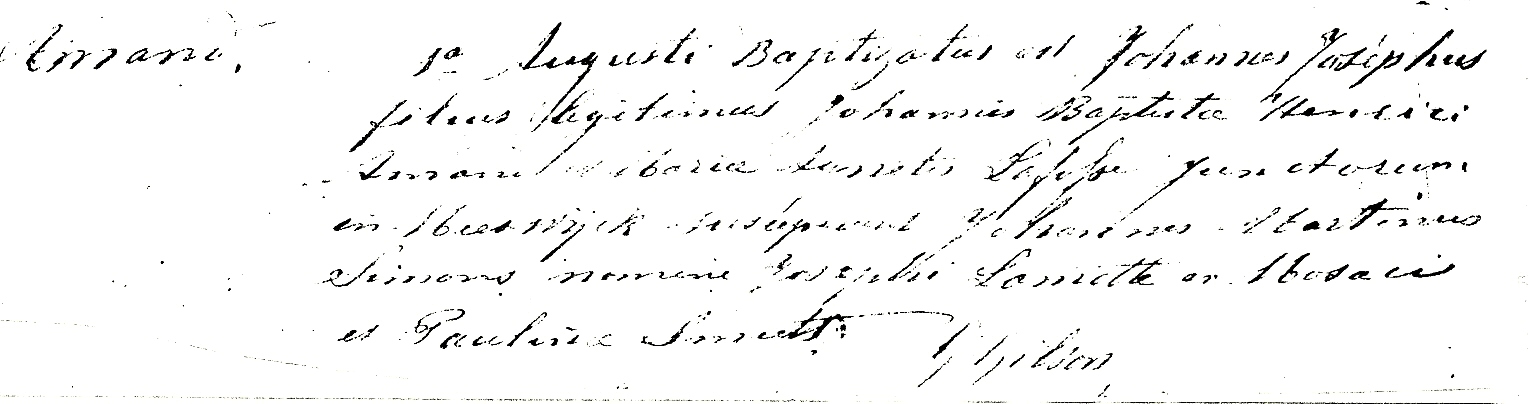 Amani.
1a Augusti Baptizatus est Johannes Joséphus
filius legitimus Johannis Baptistæ Henrici
Amani et Mariæ Lafosse junctorum
in susceperunt Johannes Martinus
Simons nomine Josephi Lamotte ex Mosacis
et Paulina Smets.
Gilson